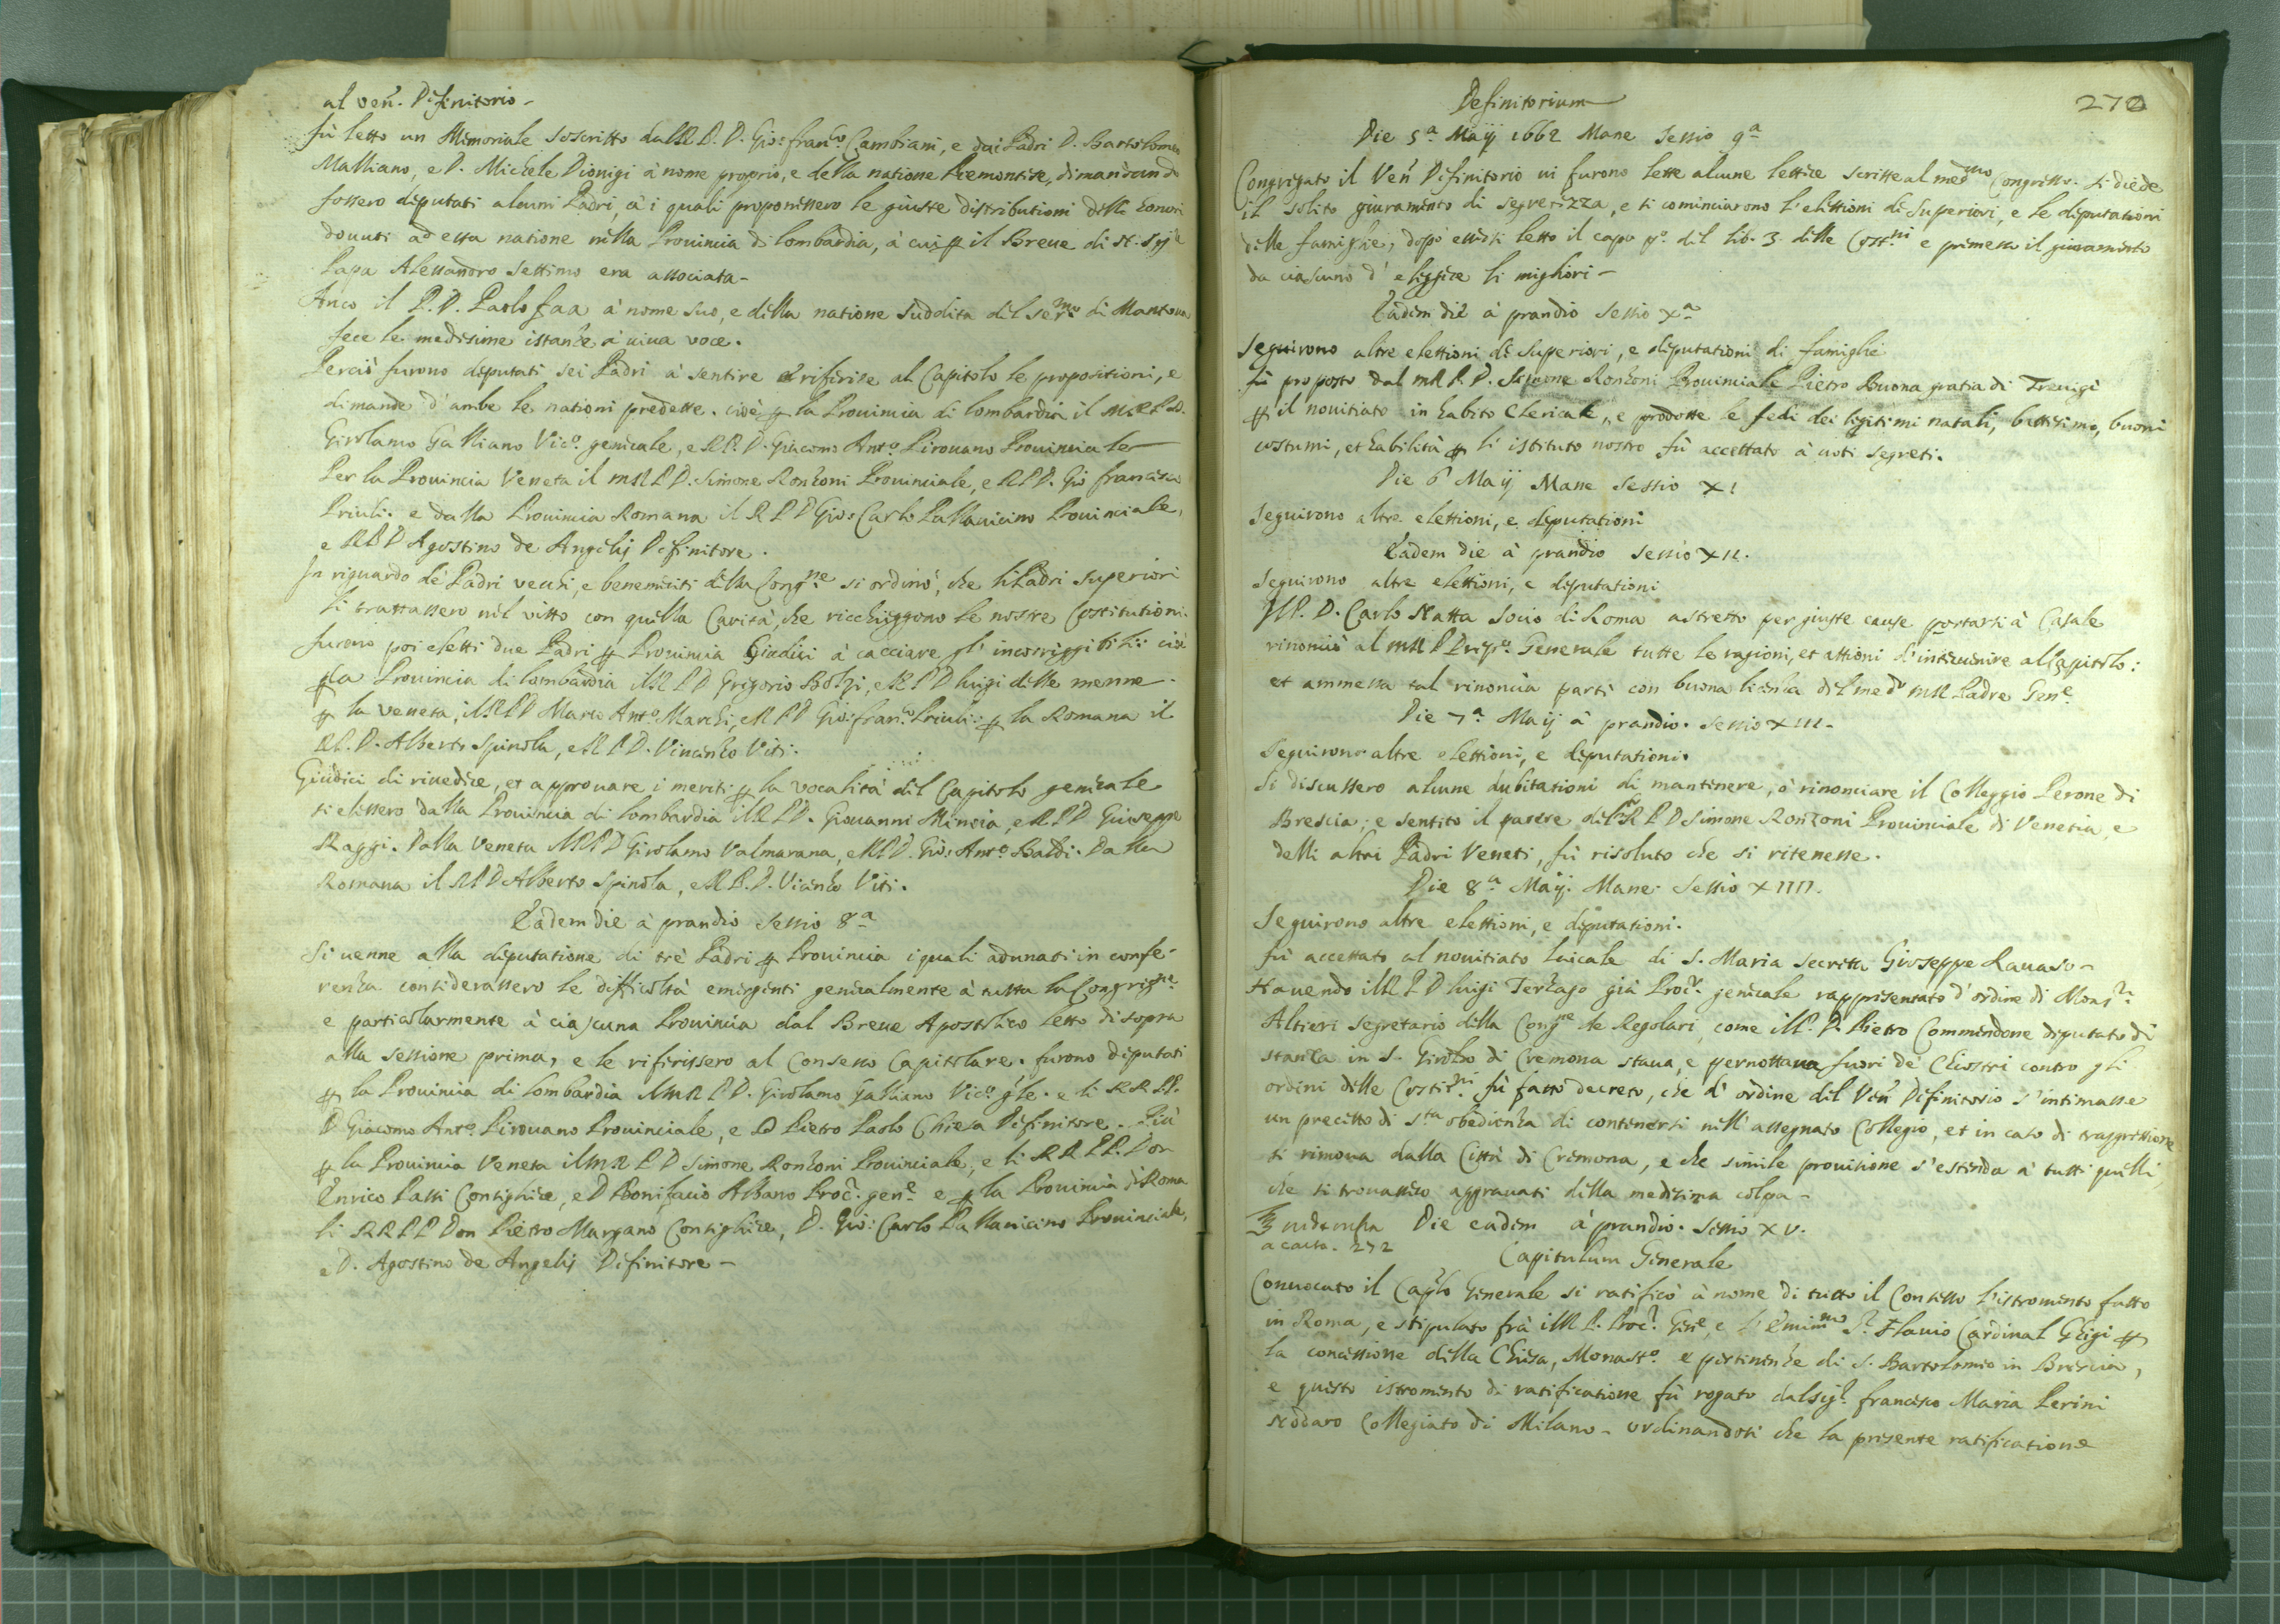 al Ven. Difinitorio -
fù letto un Memoriale soscritto dal R. P. D. Gio: Franco Cambiani, e dai Padri D. Bartolomeo
Malliano, e D. Michele Dionigi à nome proprio, e della natione Piemontese, dimandando
fossero deputati alcuni Padri, à i quali proponessero le giuste distributioni delli honori
douuti ad essa natione nella Prouincia di Lombardia, à cui per il Breue di N. Sigre
Papa Alessandro settimo era associata -
Anco il P. D. Paolo Faa à nome suo, e della natione suddita del Sermo di Mantoua
fece le medesime istanze à uiua voce.
Perciò furono deputati sei Padri à sentire e riferire al Capitolo le propositioni, e
dimande d'ambe le nationi predette. cioè per la Prouincia di Lombardia il M R P D.
Girolamo Galliano Vico. generale, e R P. D. Giacomo Anto. Pirouano Prouinciale
Per la Prouincia Veneta il M R P D. Simone Ronzoni Prouinciale, e R P D. Gio Francesco
Priuli. e dalla Prouincia Romana il R P D Gio: Carlo Pallauicino Prouinciale,
e R P D Agostino de Angelis Difinitore.
In riguardo de Padri vecchi, e benemeriti della Congne si ordinò, che li Padri Superiori
li trattassero nel vitto con quella Carità, che ricchieggono le nostre Costitutioni.
furono poi eletti due Padri per Prouincia Giudici à cacciare gl'incorriggibili: cioè
per la Prouincia di Lombardia il R P D Grigorio Bolzi, e R P D Luigi delle menne.
per la Veneta, il R P D Marco Anto. Marchi, e R P D Gio: Franco Priuli: per la Romana il
R P. D. Alberto Spinola, e R P D. Vincenzo Viti.
Giudici di riuedere, et approuare i meriti per la vocalità del Capitolo generale
si elessero dalla Prouincia di Lombardia il R P D. Giouanni Mincia, e R P D Giuseppe
Raggi. Dalla Veneta il R P D Girolamo Valmarana, e R P D. Gio: Anto. Baldi. Dalla
Romana il R P D Alberto Spinola, e R. P. D. Vicenzo Viti.
Eadem die à prandio Sessio 8a
Si uenne alla deputatione di trè Padri per Prouincia i quali adunati in confe-
renza considerassero le difficoltà emergenti generalmente à tutta la Congregne
e particolarmente à ciascuna Prouincia dal Breue Apostolico letto di sopra
alla sessione prima, e le riferissero al Consesso Capitolare. furono deputati
per la Prouincia di Lombardia il M R P D. Girolamo Galliano Vico. gle. e li R R PP.
D Giacomo Anto. Pirouano Prouinciale, e D Pietro Paolo Chiesa Difinitore. Più
per la Prouincia Veneta il M R P D Simone Ronzoni Prouinciale, e li R R P P. Don
Enrico Passi Consigliere, e D Bonifacio Albano Proc. gene e per la Prouincia di Roma
li R R P P Don Pietro Murzano Consigliere, D. Gio: Carlo Pallauicino Prouinciale,
e D. Agostino de Angelis Difinitore -
272
Definitorium
Die 5a Maij 1662 Mane Sessio 9a
Congregato il Ven Difinitorio ui furono lette alcune lettere scritte al medmo Congresso. si diede
il solito giuramento di segretezza, e si cominciarono l'elettioni di Superiori, e le deputationi
delle famiglie, dopò essersi letto il capo po. del lib. 3. delle Costni e premesso il giuramento
da ciascuno d'eleggere li migliori -
Eadem die à prandio Sessio Xa
Seguirono altre elettioni di Superiori, e deputationi di famiglie
fù proposto dal M R P. D. Simone Ronzoni Prouinciale Pietro Buona gratia di Treuigi
per il nouitiato in habito Clericale, e prodotte le fedi dei legitimi natali, battesimo, buoni
costumi, et habilità per l'istituto nostro fù accettato à uoti segreti.
Die 6 Maij Mane Sessio XI
Seguirono altre elettioni, e deputationi
Eadem die à prandio Sessio XII.
Seguirono altre elettioni, e deputationi
Il P. D. Carlo Natta Socio di Roma astretto per giuste cause portarsi à Casale
rinonciò al M R P Generale tutte le ragioni, et attioni d'interuenire al Capitolo:
et ammessa tal rinoncia partì con buona licenza del medo M R Padre Gene
Die 7a Maij à prandio. Sessio XIII.
Seguirono altre elettioni, e deputationi.
Si discussero alcune dubitationi di mantenere, ò rinonciare il Colleggio Perone di
Brescia. e sentito il parere del M R P D Simone Ronzoni Prouinciale di Venetia, e
delli altri Padri Veneti, fù risoluto che si ritenesse.
Die 8a Maij. Mane. Sessio XIIII.
Seguirono altre elettioni, e deputationi.
fù accettato al nouitiato laicale di S. Maria Secreta Gioseppe Rauaso -
Hauendo il R P D Luigi Terzago già Procr. generale rappresentato d'ordine di Monsr.
Altieri Segretario della Congne de Regolari, come il P. D. Pietro Commendone deputato di
stanza in S. Girolmo di Cremona staua, e pernottaua fuori de Chiostri contro gli
ordini delle Costitni. fù fatto decreto, che d'ordine del Ven Difinitorio s'intimasse
un precetto di Sta obedienza di contenersi nell'assegnato Collegio, et in caso di trasgressione
si rimoua dalla Città di Cremona, e che simile prouisione s'estenda à tutti quelli,
che si trouassero aggrauati della medesima colpa -
Die eadem à prandio. Sessio XV.
a carta. 272
Capitulum Generale
Conuocato il Caplo Generale si ratificò à nome di tutto il Consesso l'istromento fatto
in Roma, e stipulato frà il R P. Procr. Gene, e l'Eminmo Sr. Flauio Cardinal Ghigi per
la concessione della Chiesa, Monasto. e pertinenze di S. Bartolomeo in Brescia,
e questo istromento di ratificatione fù rogato dal Sigr. Francesco Maria Perini
Nodaro Collegiato di Milano - ordinandosi che la presente ratificatione